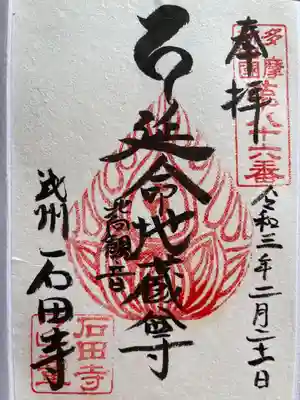 奉拝
多摩四国
第七十六番
令和三年二月二十一日
延命地蔵尊
北向観音
武州 石田寺
石田寺